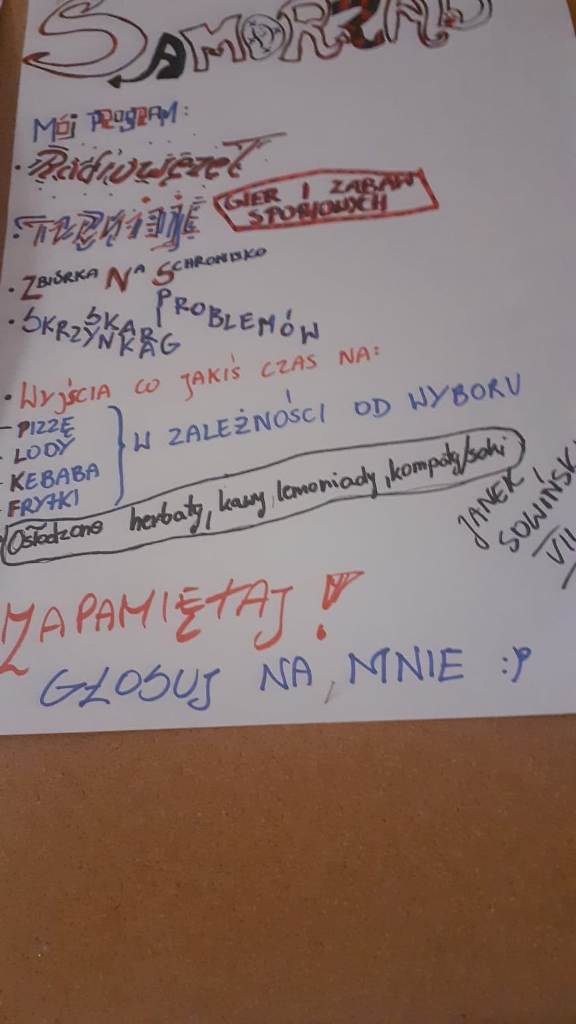 SAMORZĄD
MÓJ PROGRAM:
• Radiowęzeł
• TURNIEJE GIER I ZABAW
SPORTOWYCH
• ZBIÓRKA NA SCHRONISKO
• SKRZYNKA SKARG I PROBLEMÓW
• WYJŚCIA CO JAKIŚ CZAS NA:
- PIZZĘ
- LODY
- KEBABA
- FRYTKI
} W ZALEŻNOŚCI OD WYBORU
Osłodzone herbaty, kawy, lemoniady, kompoty/soki
JANEK
SOWIŃSKI
VII
ZAPAMIĘTAJ!
GŁOSUJ NA MNIE :P